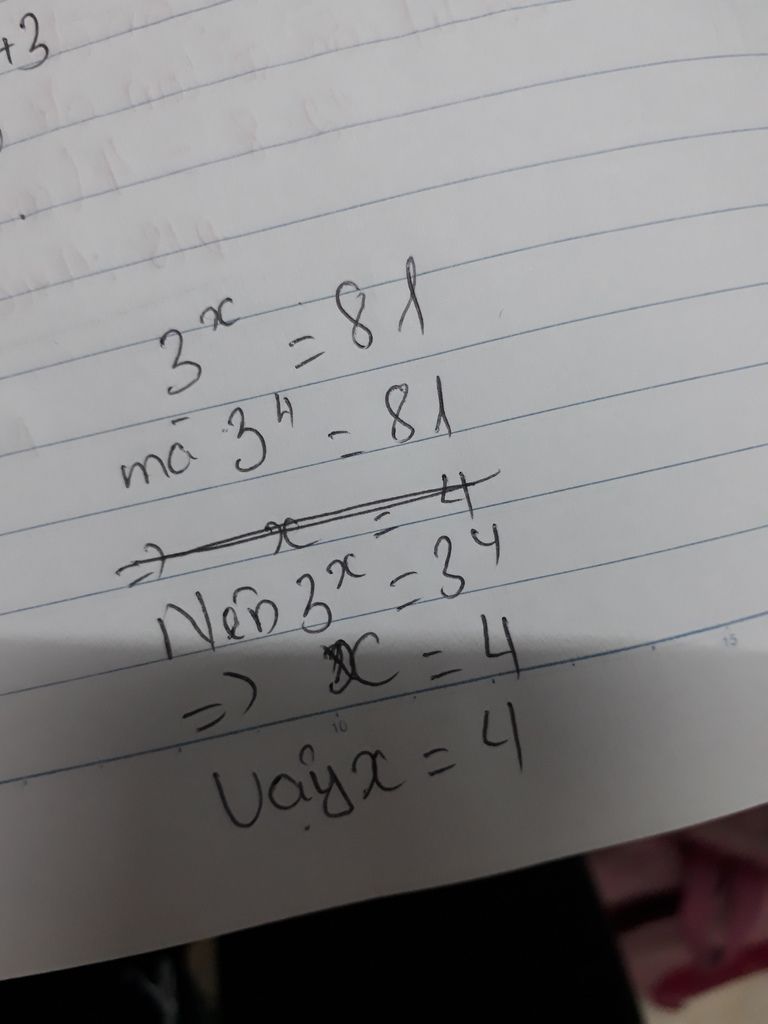 +3
3^x = 81
mà 3^4 = 81
=> x = 4
Nên 3^x = 3^4
=> x = 4
Vậy x = 4
15
10